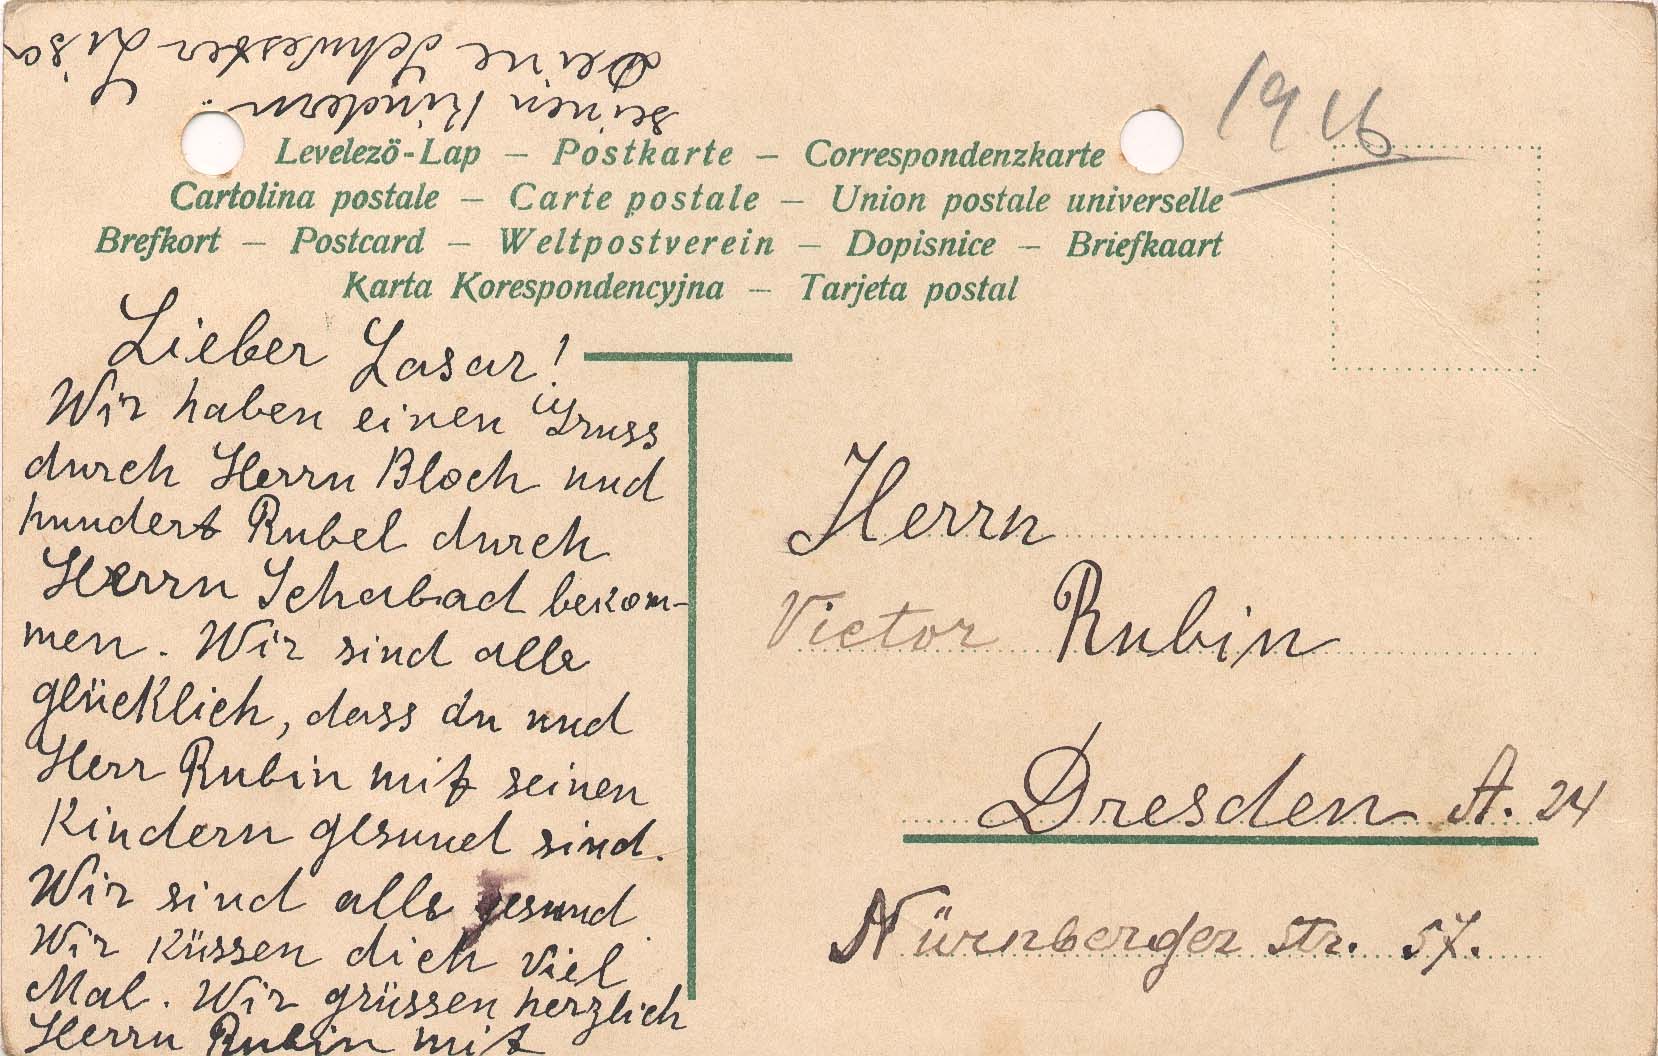 Levelezö-Lap – Postkarte – Correspondenzkarte
Cartolina postale – Carte postale – Union postale universelle
Brefkort – Postcard – Weltpostverein – Dopisnice – Briefkaart
Karta Korespondencyjna – Tarjeta postal
1916
Lieber Lasar!
Wir haben einen Gruss
durch Herrn Bloch und
hundert Rubel durch
Herrn Schabad bekom-
men. Wir sind alle
glücklich, dass du und
Herr Rubin mit seinen
Kindern gesund sind.
Wir sind alle gesund.
Wir küssen dich viel
Mal. Wir grüssen herzlich
Herrn Rubin mit
seinen Kindern.
Deine Schwester Lisa
Herrn
Victor Rubin
Dresden A. 24
Nürnberger str. 57.